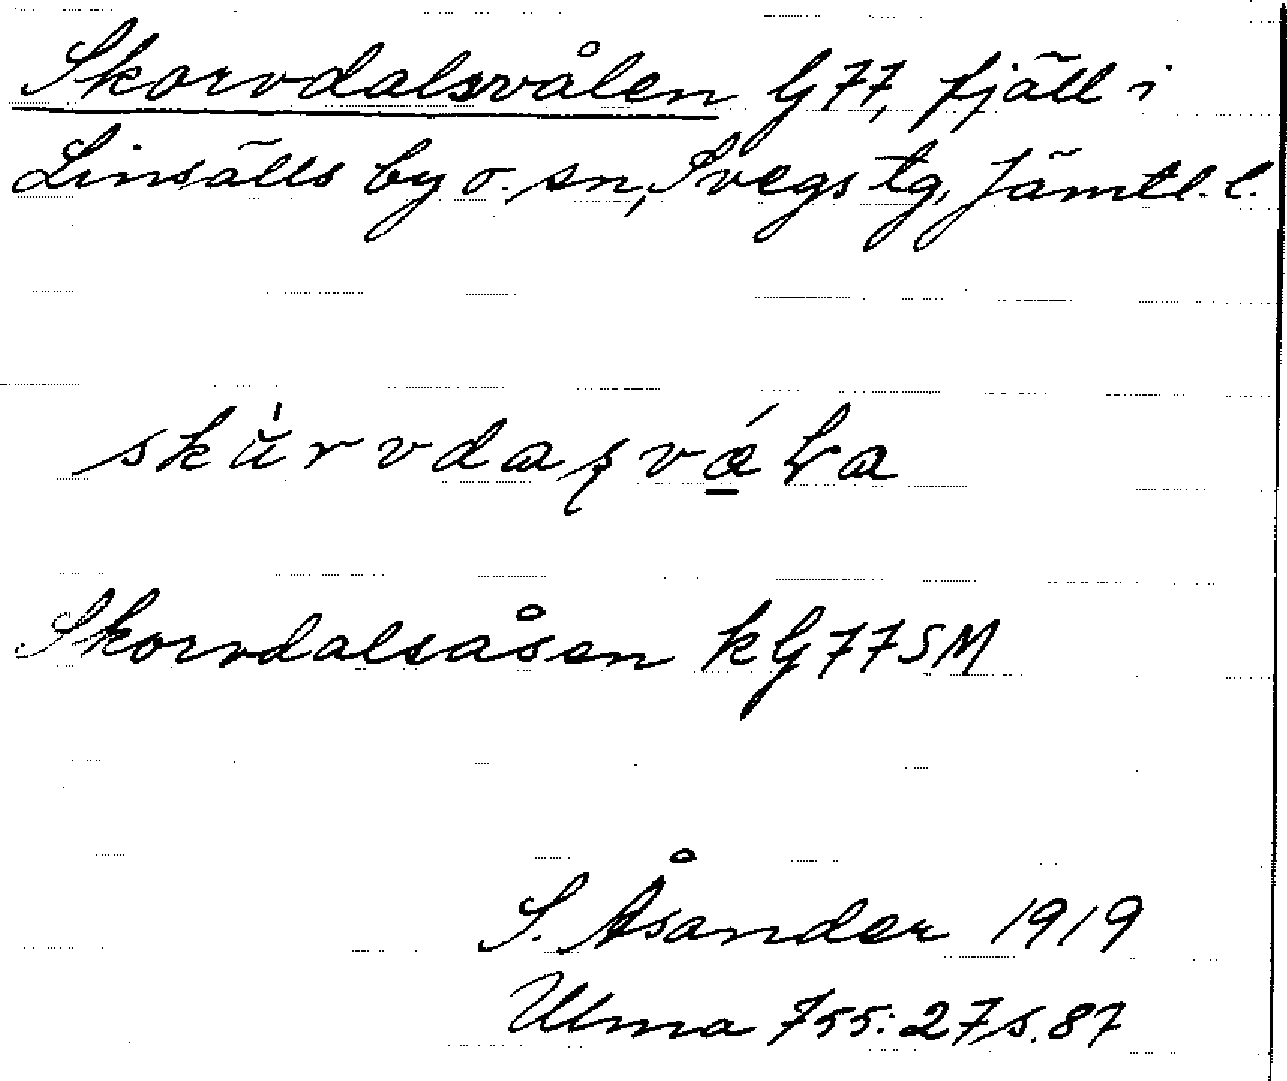 Skorvdalsvålen G77, fjäll i
Linsälls by o. sn, Svegs tg, Jämtl. l.
Skorvdalsåsen kG77SM
S. Åsander 1919
Ulma 755:27 s. 87